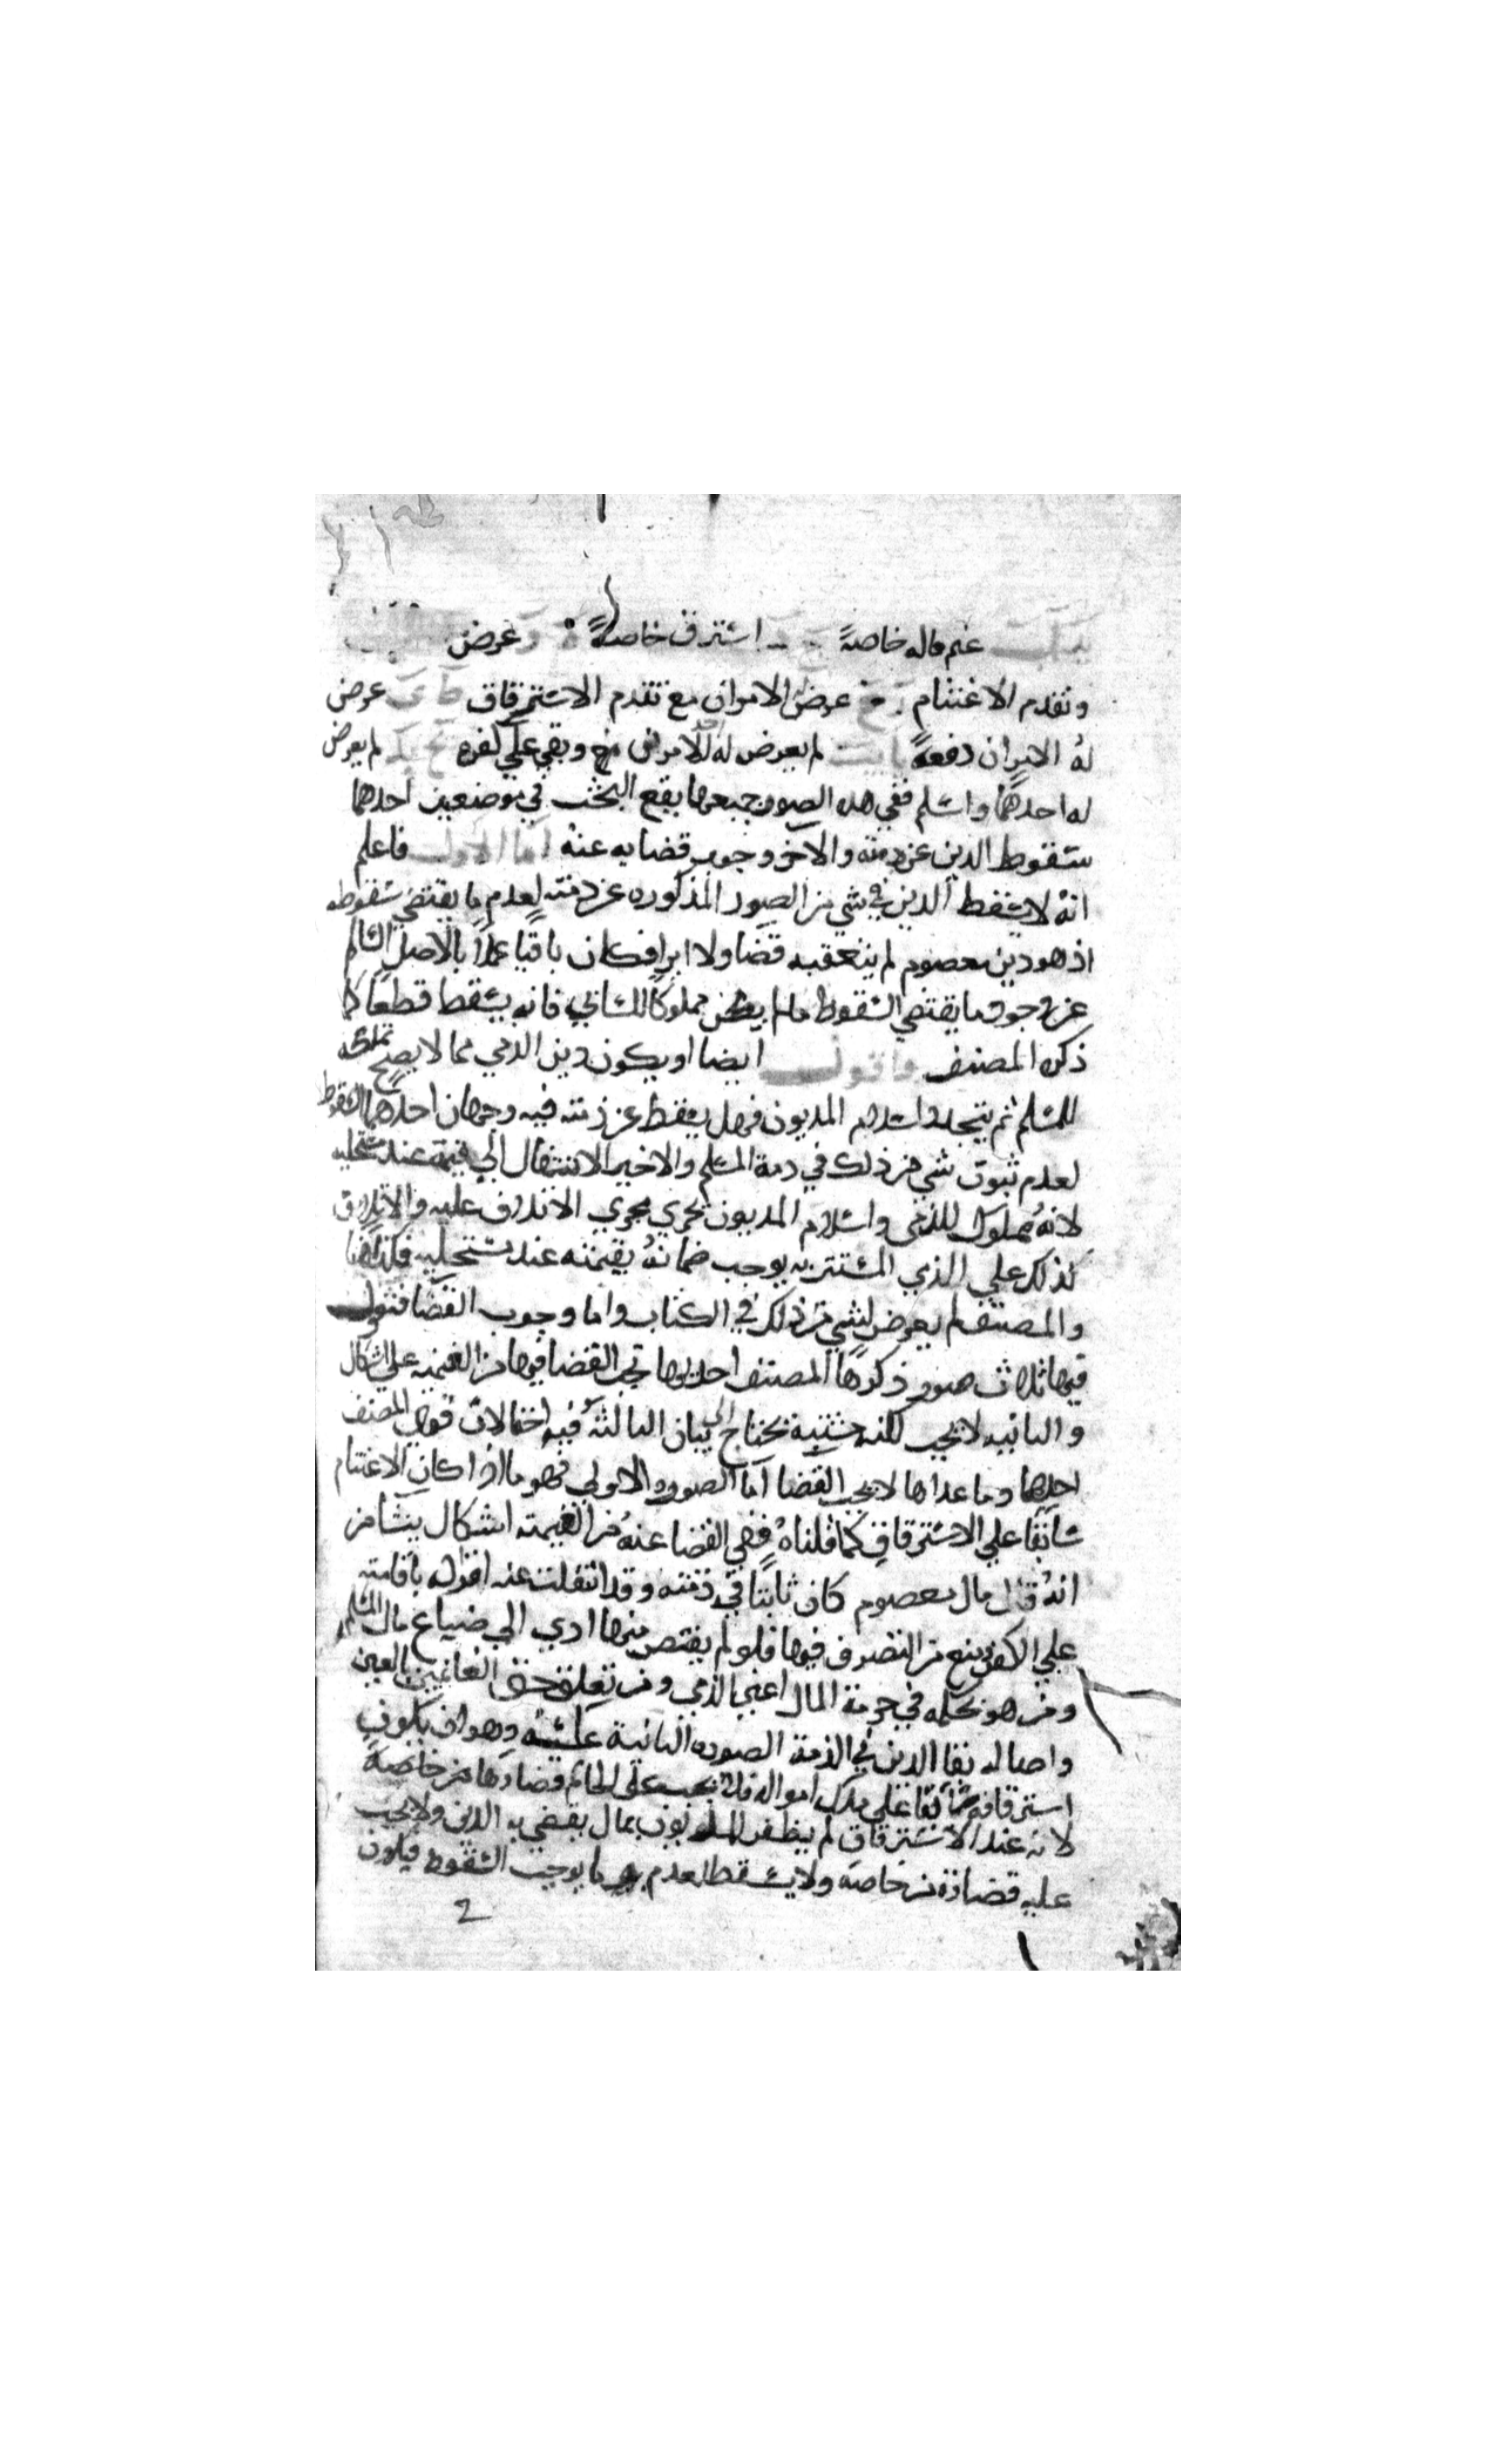 غنم ماله خاصةً استرق خاصةً عرض
وتقدم الاغتنام عرض الامران مع تقدم الاسترقاق عرض
لهُ الامران دفعةً لم يعرض له احد الامرين وبقي علي كفره لم يعرض
له احدهما واسلم ففي هذه الصور جميعها يقع البحث في موضعين احدهما
سقوط الدين عن ذمته والاخر وجوب قضايه عنهُ اما الاول فاعلم
انهُ لا يسقط الدين في شي من الصور المذكوره عن ذمته لعدم ما يقتضي سقوطه
اذ هو دين معصوم لم يتعقبه قضا ولا ابرا فكان باقيًا عملًا بالاصل السالم
عن وجود ما يقتضي السقوط ما لم يكن مملوكًا للسابي فانه يسقط قطعًا كما
ذكره المصنف واقول ايضا او يكون دين الذمي مما لا يصح تملكه
للمسلم ثم يتجدد اسلام المديون فهل يسقط عن ذمته فيه وجهان احدهما السقوط
لعدم ثبوت شي من ذلك في ذمة المسلم والاخير الانتقال الي قيمة عند مستحليه
لانهُ مملوك للذمي واسلام المديون يجري مجري الاتلاف عليه والاتلاف
كذلك علي الذمي المستتر به يوجب ضمانهُ بقيمته عند مستحليه فكذا هنا
والمصنف لم يعرض لشي من ذلك في الكتاب واما وجوب القضا فنقول
فيها ثلاث صور ذكرها المصنف احديها تجب القضا فيها من الغنيمه علي اشكال
والثانيه لا يجب لكنه تحتاج الي بيان الثالثهُ فيه احتمالات قول المصنف
احدها وما عداها لا يجب القضا اما الصوره الاولي فهو ما اذا كان الاغتنام
سابقا علي الاسترقاق كما قلناهُ ففي القضا عنهُ من الغنيمته اشكال ينشا من
انهُ قال مال معصوم كان ثابتا في ذمته وقد انتقلت عنه امواله باقامته
علي الكفر ومنع من التصرف فيها فلو لم يقتص منها ادي الي ضياع مال المسلم
ومن هو بحكمه في حرمة المال اعني الذمي ومن تعلق حق الغانمين بالعين
واصاله بقا الدين في الذمة الصوره الثانية عكسه وهو ان يكون
استرقاقه سابقا علي ملك امواله فلا يجب علي الحاكم قضاوها من خاصة
لانه عند الاسترقاق لم يظفر للمديون بمال يقضي به الدين ولا يجب
عليه قضاوه من خاصه ولا يسقط لعدم ما يوجب السقوط فيكون
2